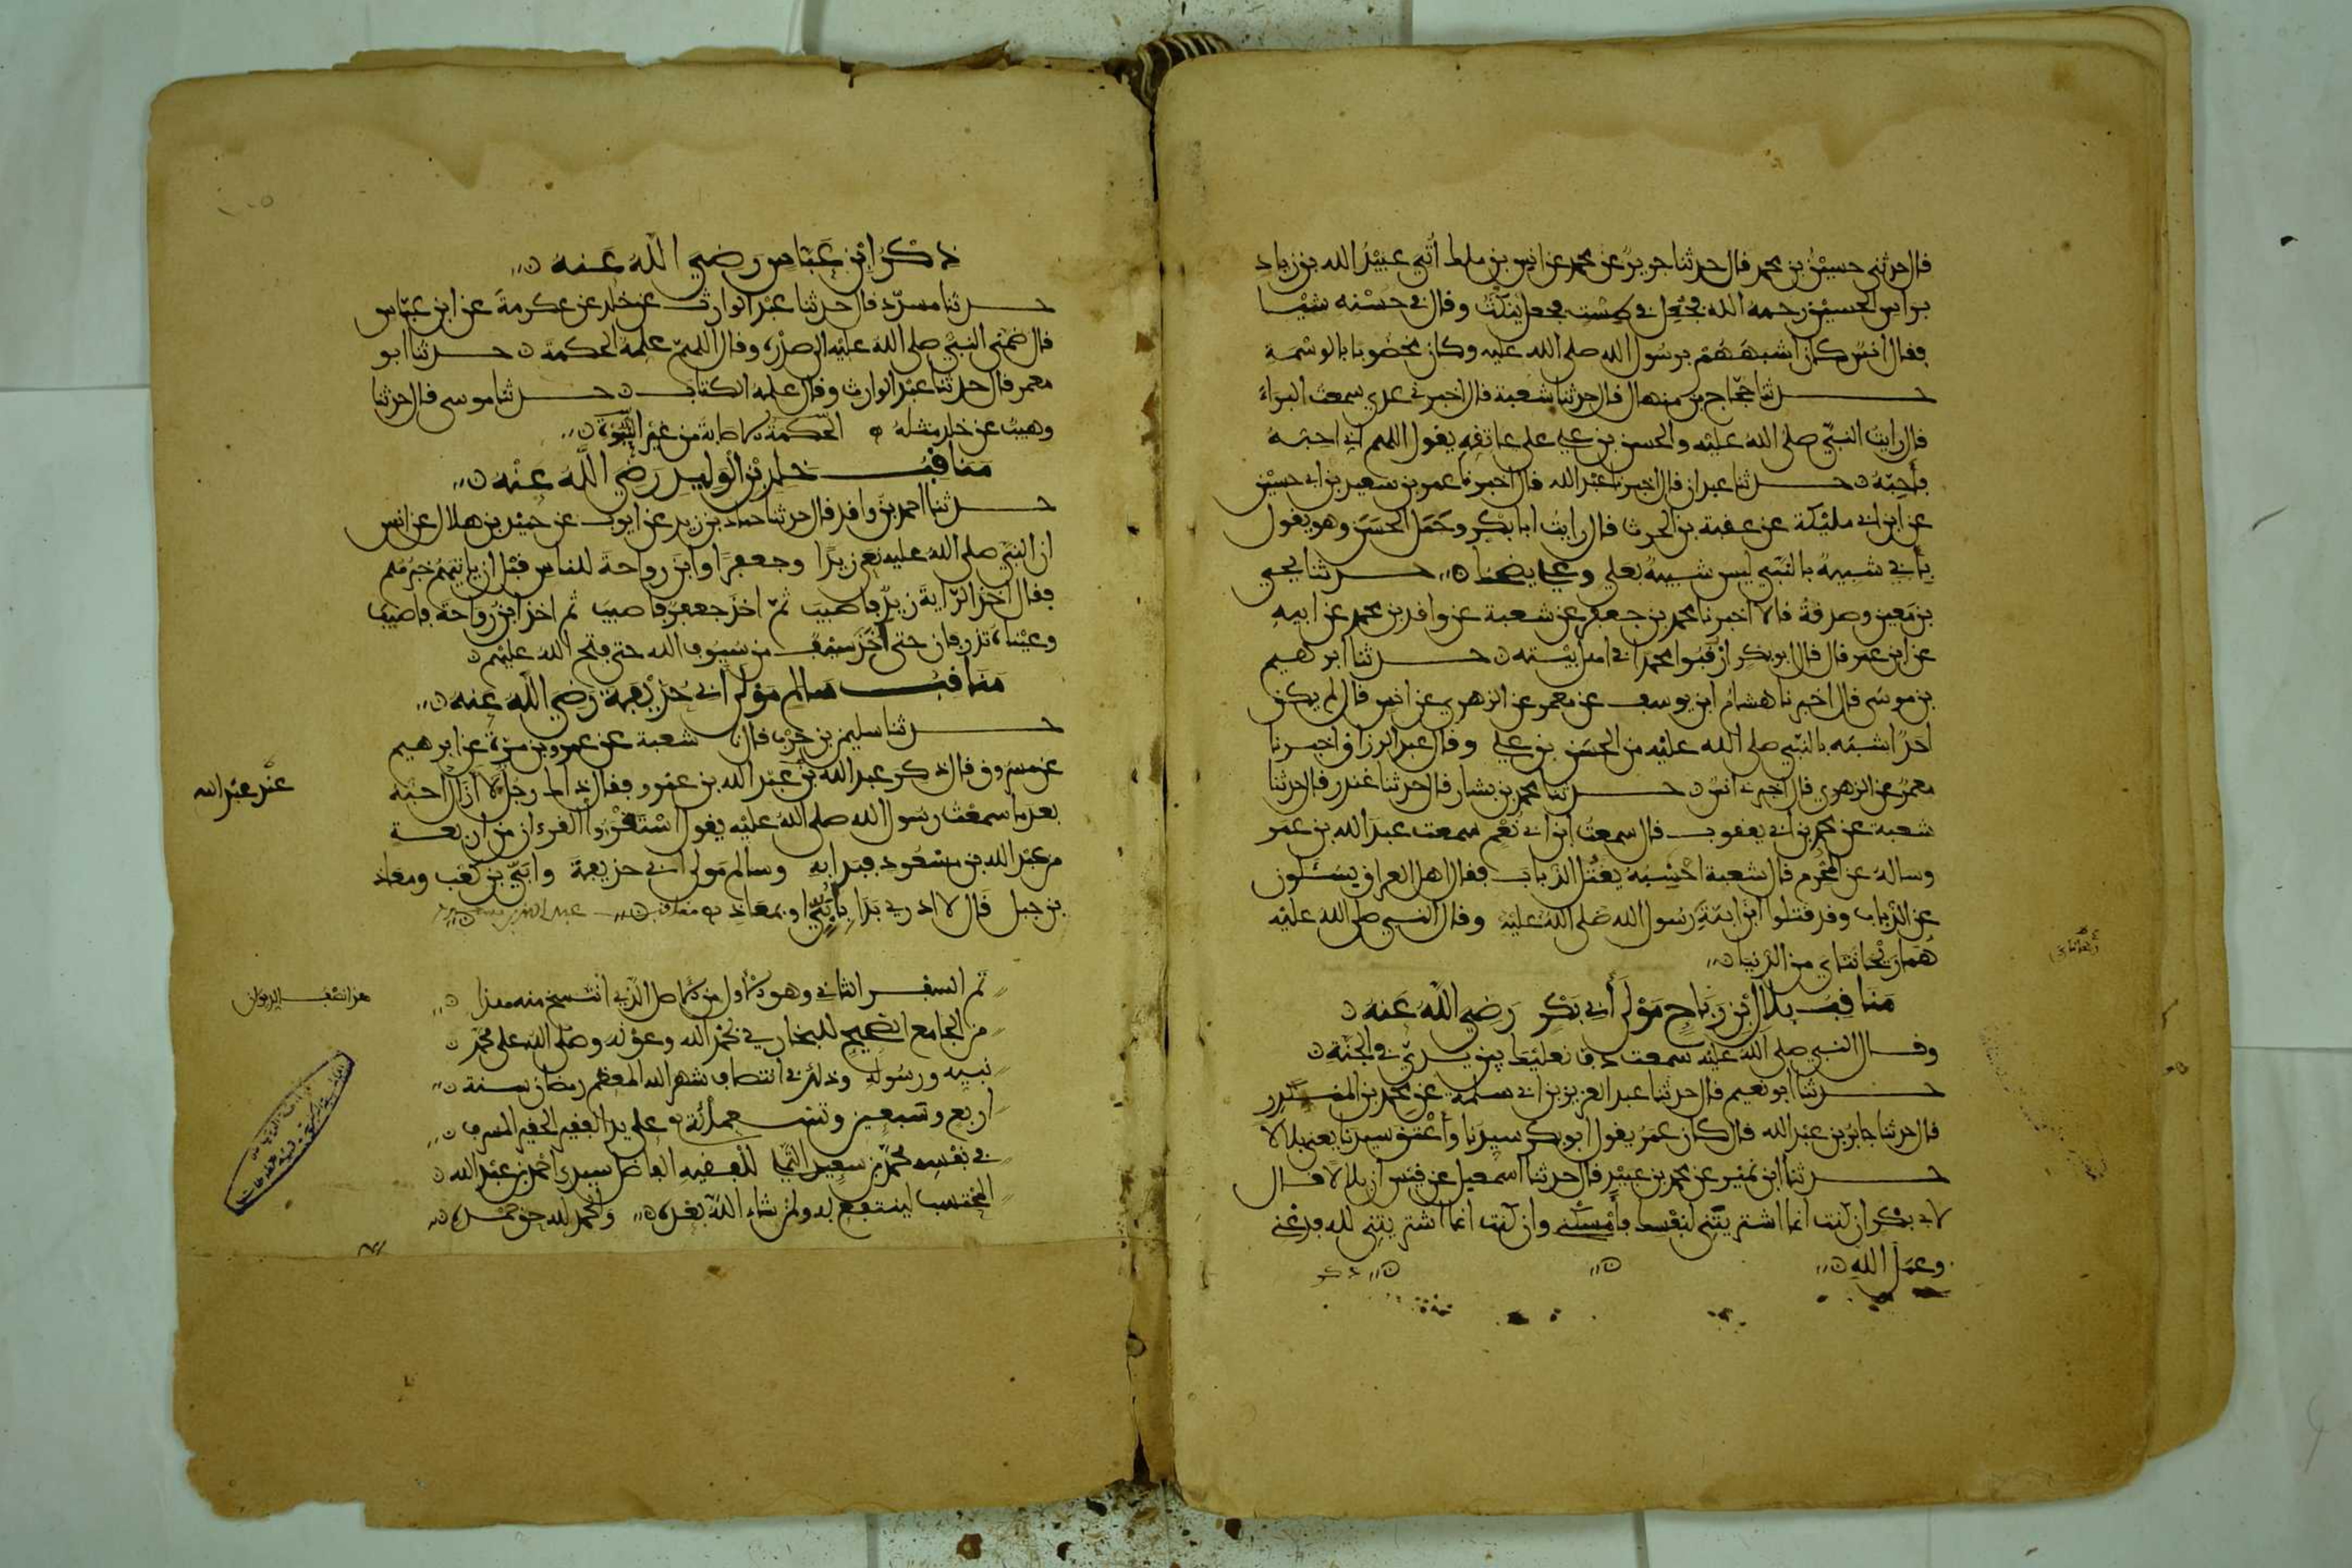 قال حدثني حسين بن محمد قال حدثنا جرير عن محمد عن انس بن ملك أتي عبيد الله بن زياد
براس الحسين رحمه الله فجعل في طست فجعل ينكت وقال في حسنه شيئا
فقال انس كان اشبههم برسول الله صلى الله عليه وكان مخضوبا بالوسمة
حدثنا حجاج بن منهال قال حدثنا شعبة قال اخبرني عدي سمعت البراء
قال رايت النبي صلى الله عليه والحسن بن علي على عاتقه يقول اللهم اني احبه
فأحبه حدثنا عبدان قال اخبرنا عبد الله قال اخبرنا عمر بن سعيد بن ابي حسين
عن ابن ابي مليكة عن عقبة بن الحرث قال رايت ابا بكر وحمل الحسن وهو يقول
بأبي شبيه بالنبي ليس شبيه بعلي وعلي يضحك حدثنا يحيى
بن معين وصدقة قالا اخبرنا محمد بن جعفر عن شعبة عن واقد بن محمد عن ابيه
عن ابن عمر قال قال ابو بكر ارقبوا محمدا في اهل بيته حدثنا ابرهيم
بن موسى قال اخبرنا هشام ابن يوسف عن معمر عن الزهري عن انس قال لم يكن
احد اشبه بالنبي صلى الله عليه من الحسن بن علي وقال عبد الرزاق اخبرنا
معمر عن الزهري قال اخبرني انس حدثنا محمد بن بشار قال حدثنا غندر قال حدثنا
شعبة عن محمد بن ابي يعقوب قال سمعت ابن ابي نعم سمعت عبد الله بن عمر
وساله عن المحرم قال شعبة احسبه يقتل الذباب فقال اهل العراق يسئلون
عن الذباب وقد قتلوا ابن ابنة رسول الله صلى الله عليه وقال النبي صلى الله عليه
هما ريحانتاي من الدنيا
مناقب بلال بن رباح مولى أبي بكر رضي الله عنه
وقال النبي صلى الله عليه سمعت دف نعليك بين يدي في الجنة
حدثنا ابو نعيم قال حدثنا عبد العزيز بن ابي سلمة عن محمد بن المنكدر
قال حدثنا جابر بن عبد الله قال كان عمر يقول ابو بكر سيدنا وأعتق سيدنا يعني بلالا
حدثنا ابن نمير عن محمد بن عبيد قال حدثنا اسمعيل عن قيس ان بلالا قال
لابي بكر ان كنت انما اشتريتني لنفسك فأمسكني وان كنت انما اشتريتني لله فدعني
وعمل الله
ذكر
ذكر ابن عباس رضي الله عنه
حدثنا مسدد قال حدثنا عبد الوارث عن خلد عن عكرمة عن ابن عباس
قال ضمني النبي صلى الله عليه الى صدره وقال اللهم علمه الحكمة حدثنا ابو
معمر قال حدثنا عبد الوارث وقال علمه الكتاب حدثنا موسى قال حدثنا
وهيب عن خلد مثله الحكمة الاصابة من غير النبوة
مناقب خلد بن الوليد رضي الله عنه
حدثنا احمد بن واقد قال حدثنا حماد بن زيد عن ايوب عن حميد بن هلال عن انس
ان النبي صلى الله عليه نعى زيدا وجعفرا وابن رواحة للناس قبل ان ياتيهم خبرهم
فقال اخذ الراية زيد فاصيب ثم اخذ جعفر فاصيب ثم اخذ ابن رواحة فاصيب
وعيناه تذرفان حتى أخذ سيف من سيوف الله حتى فتح الله عليهم
مناقب سالم مولى ابي حذيفة رضي الله عنه
حدثنا سليمن بن حرب قال نا شعبة عن عمرو بن مرة عن ابرهيم
عن مسروق قال ذكر عبد الله بن عبد الله بن عمرو فقال ذاك رجل لا أزال احبه
عند عبد الله
بعد ما سمعت رسول الله صلى الله عليه يقول استقرءوا القرءان من اربعة
من عبد الله بن مسعود فبدا به وسالم مولى ابي حذيفة وابي بن كعب ومعاذ
بن جبل قال لا ادري بدا بأبي او بمعاذ مناقب عبد الله بن مسعود
تم السفر الثاني وهو الاول من الاصل الذي انتسخ منه هذا
هذا نصف الديوان
من الجامع الصحيح للبخاري بحمد الله وعونه وصلى الله على محمد
نبيه ورسوله وذلك في انتصاف شهر الله المعظم رمضان سنة
اربع وتسعين وتسعمائة على يد الفقير الحقير المسرف
في نفسه محمد بن سعيد للفقيه الفاضل سيدي احمد بن عبد الله
المحتسب لينتفع به ولمن شاء الله بعده والحمد لله حق حمده